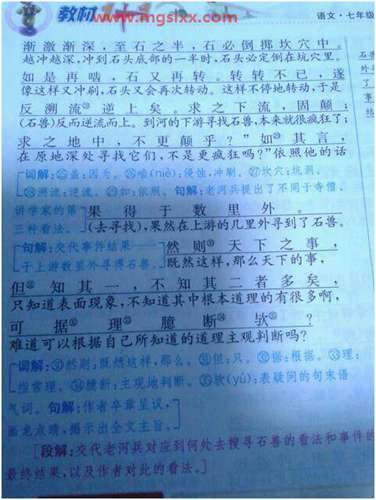 教材
www.mgslxx.com
语文·七年级
渐激渐深，至石之半，石必倒掷坎穴中。
越冲越深，冲到石头底部的一半时，石头必定倒在坑穴里。
如是再啮，石又再转。转转不已，遂
像这样又冲刷，石头又会再次转动。这样不停地转动，于是
反溯流㉘逆上矣。求之下流，固颠；
（石兽）反而逆流而上。到河的下游寻找石兽，本来就很疯狂了；
求之地中，不更颠乎？”如㉙其言，
在原地深处寻找它们，不是更疯狂吗？”依照他的话
词解：㉕盖：因为。㉖啮（niè）：侵蚀，冲刷。㉗坎穴：坑洞。
㉘溯流：逆流。㉙如：依照。句解：老河兵提出了不同于寺僧、
讲学家的第三种看法。
果得于数里外。
（去寻找），果然在上游的几里外寻到了石兽。
句解：交代事件结果——于上游数里外寻得石兽。
然则㉚天下之事，
既然这样，那么天下的事，
但㉛知其一，不知其二者多矣，
只知道表面现象，不知道其中根本道理的有很多啊，
可据㉜理㉝臆断㉞欤㉟？
难道可以根据自己所知道的道理主观判断吗？
词解：㉚然则：既然这样，那么。㉛但：只。㉜据：根据。㉝理：
指常理。㉞臆断：主观地判断。㉟欤（yú）：表疑问的句末语
气词。句解：作者卒章显议，
画龙点睛，揭示出全文主旨。
［段解：交代老河兵对应到何处去搜寻石兽的看法和事件的
最终结果，以及作者对此的看法。］